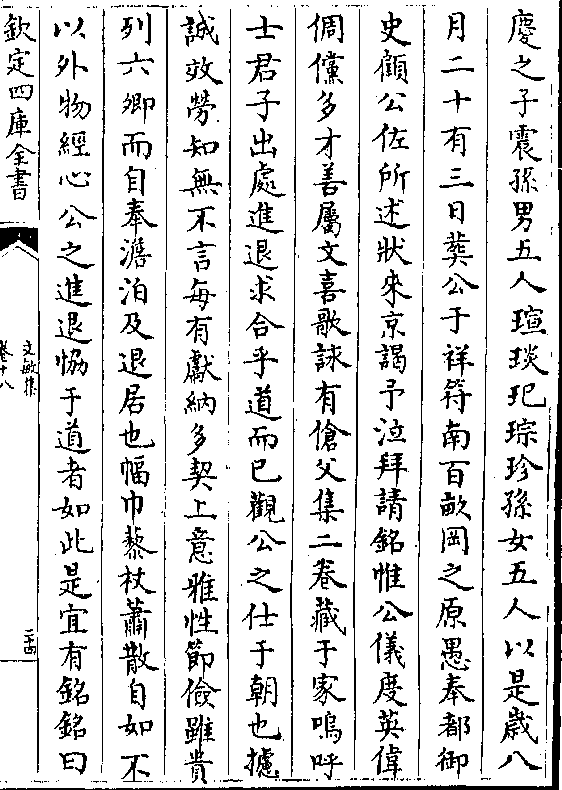 慶之子震孫男五人瑄琰玘琮珍孫女五人以是歲八
月二十有三日葬公于祥符南百畝岡之原愚奉都御
史顧公佐所述狀來京謁予泣拜請銘惟公儀度英偉
倜儻多才善屬文喜歌詠有傖父集二卷藏于家嗚呼
士君子出處進退求合乎道而已觀公之仕于朝也攄
誠效勞知無不言每有獻納多契上意雅性節儉雖貴
列六卿而自奉澹泊及退居也幅巾藜杖蕭散自如不
以外物經心公之進退恊于道者如此是宜有銘銘曰
欽定四庫全書
文敏集
卷十八
二十四